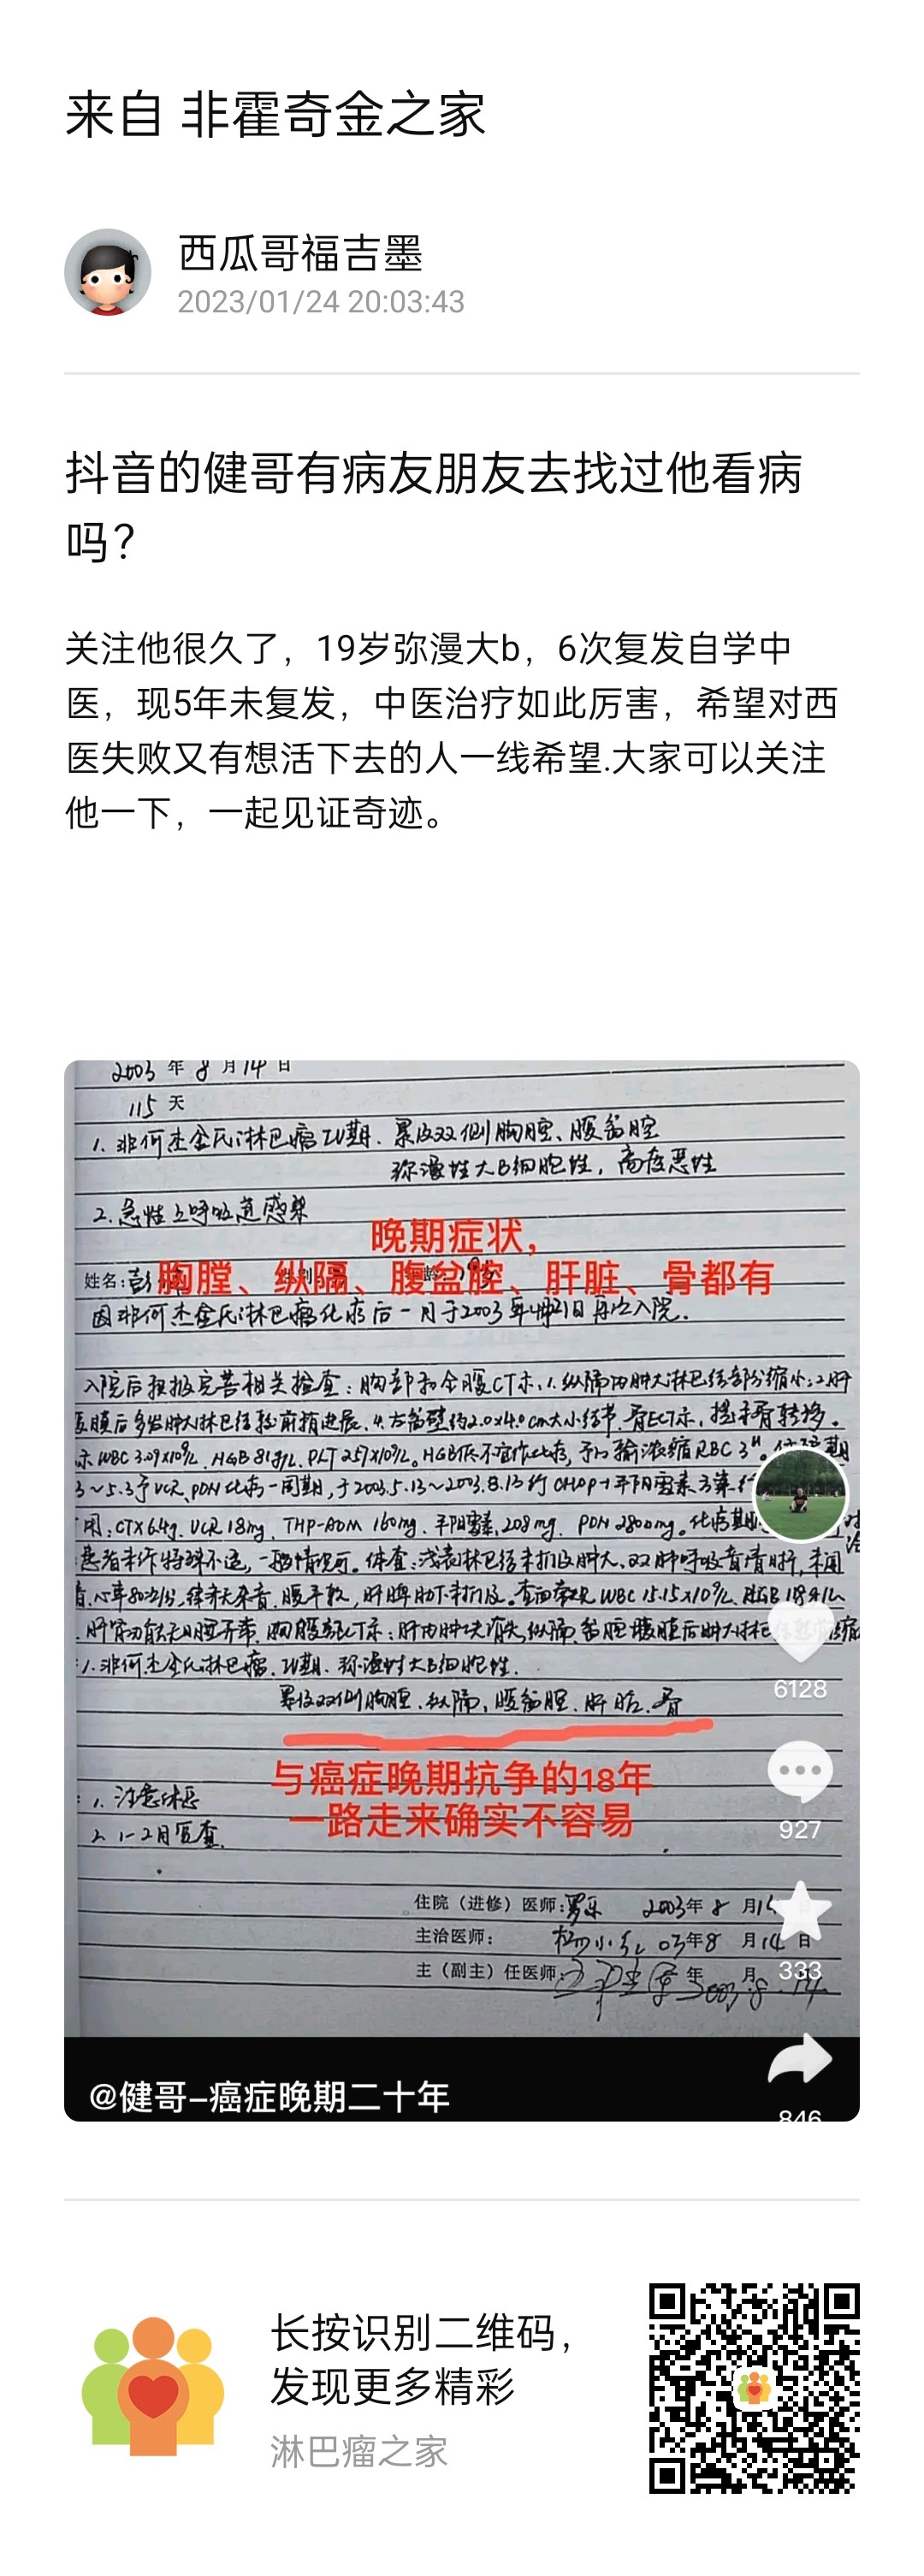 来自 非霍奇金之家
西瓜哥福吉墨
2023/01/24 20:03:43
抖音的健哥有病友朋友去找过他看病
吗？
关注他很久了，19岁弥漫大b，6次复发自学中
医，现5年未复发，中医治疗如此厉害，希望对西
医失败又有想活下去的人一线希望.大家可以关注
他一下，一起见证奇迹。
2003 年 8 月 14 日
115 天
1. 非何杰金氏淋巴瘤IV期. 累及双侧胸腔、腹盆腔
弥漫性大B细胞性，高度恶性
2. 急性上呼吸道感染
晚期症状，
姓名:彭 性别 年龄: 19岁
胸膛、纵隔、腹盆腔、肝脏、骨都有
因非何杰金氏淋巴瘤化疗后一月于2003年4月21日再次入院.
入院后积极完善相关检查：胸部和全腹CT示:1.纵隔内肿大淋巴结部分缩小;2.肝
腹膜后多发肿大淋巴结较前稍进展. 4.右 约2.0x4.0cm大小结节. 骨ECT示, 提示骨转移.
示 WBC 3.09x10⁹/L. HGB 81g/L. PLT 257x10⁹/L。HGB低不宜作化疗, 予以输浓缩RBC 3ᵘ.
3~5.3予VCR、PDN化疗一周期，于2003.5.13~2003.8.13行CHOP+平阳霉素方案
用:CTX 6.4g. VCR 18mg. THP-ADM 160mg. 平阳霉素 208mg. PDN 2800mg。化疗期
患者未诉特殊不适，一般情况可。体查:浅表淋巴结未扪及肿大、双肺呼吸音清晰，未闻
音.心率80次/分, 律齐无杂音. 腹平软，肝脾肋下未扪及。查血常规WBC 15.15x10⁹/L.
肝肾功能无明显异常. 胸腹部CT示：肝内肿块消失.纵隔、盆腔腹膜后肿大淋巴结较前缩
:1.非何杰金氏淋巴瘤. IV期. 弥漫性大B细胞性.
累及双侧胸腔. 纵隔, 腹盆腔. 肝脏. 骨
与癌症晚期抗争的18年
一路走来确实不容易
: 1. 注意休息
2. 1-2月复查.
住院（进修）医师: 2003年 8 月14日
主治医师： 03年8 月14日
主（副主）任医师: 年 月 2003.8.14
6128
927
333
846
@健哥-癌症晚期二十年
长按识别二维码，
发现更多精彩
淋巴瘤之家